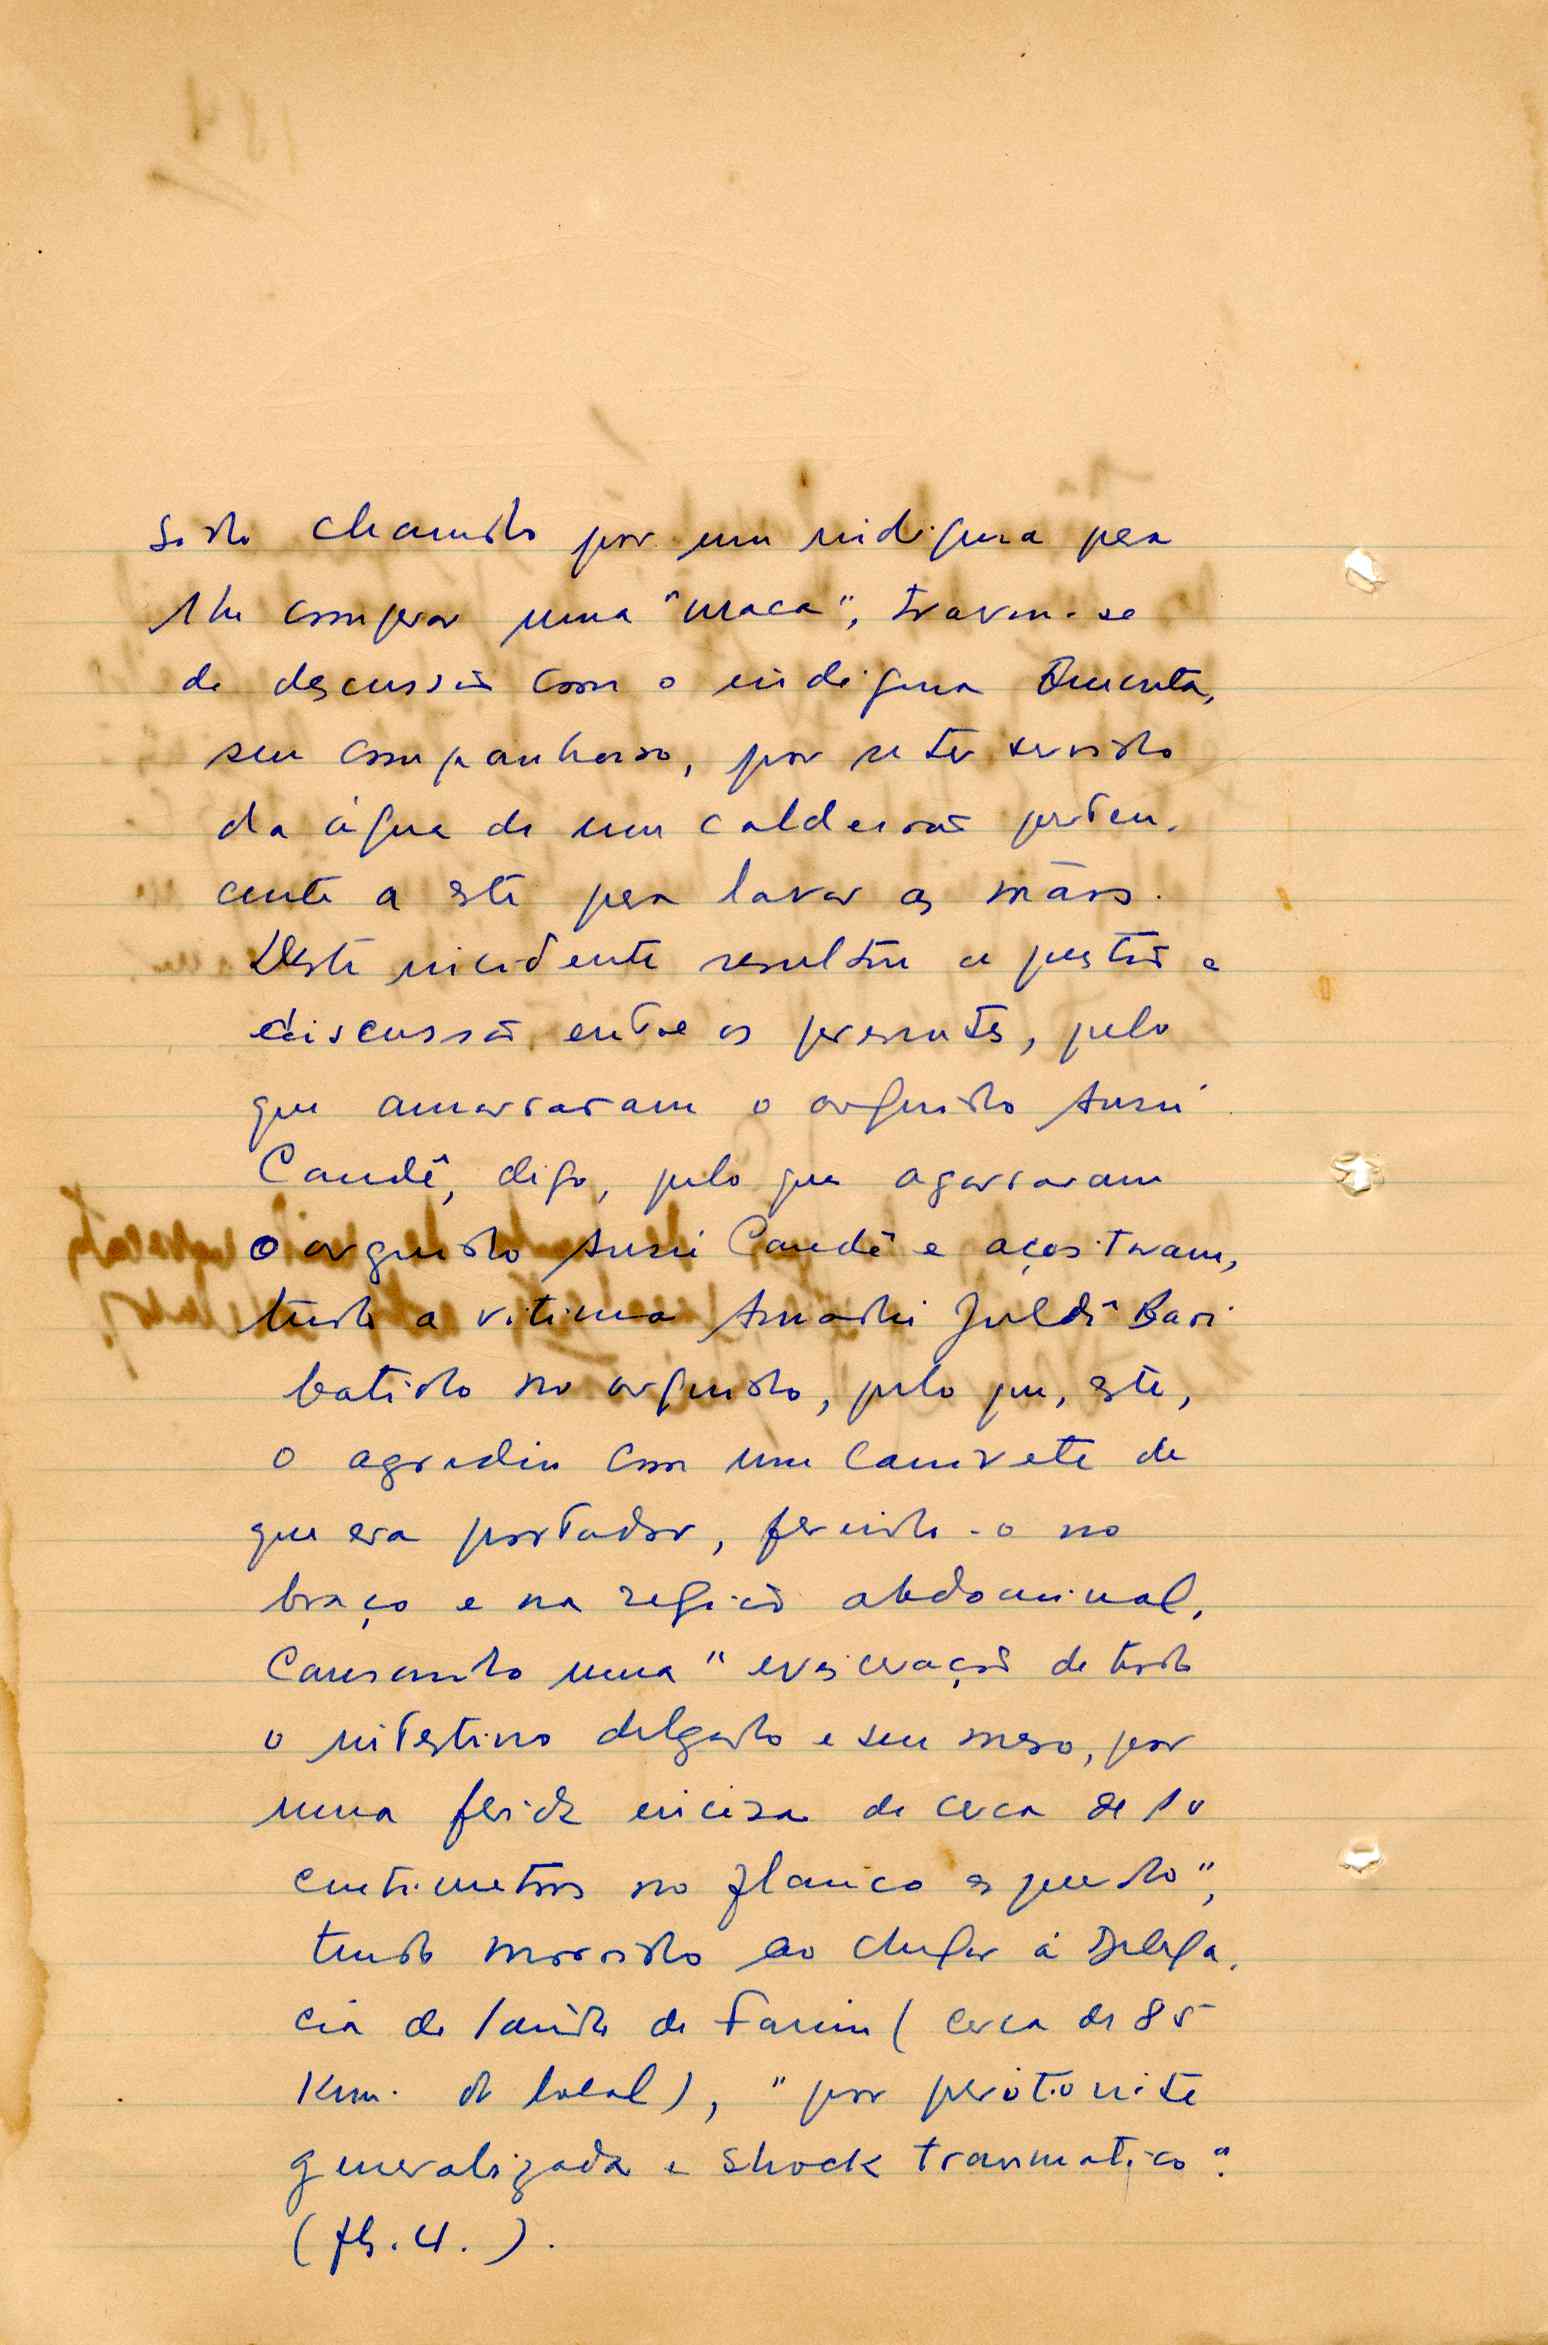 sido chamado por um indigena para
lhe comprar uma "maca", travou-se
de descussão com o indigena
seu companheiro, por se ter servido
da água de um caldeirão perten-
cente a este para lavar as mãos.
Deste incidente resultou a questão e
discussão entre os presentes, pelo
que amarraram o arguido
Candê, digo, pelo que agarraram
o arguido Candê e açoitaram,
tendo a vitima Amadú Juldé Bari
batido no arguido, pelo que, este,
o agrediu com um canivete de
que era portador, ferindo-o no
braço e na região abdominal,
causando uma "evisceração de todo
o intestino delgado e seu meso, por
uma ferida incisa de cerca de 10
centimetros no flanco esquerdo",
tendo morrido ao chegar à Delega-
cia de Saúde de Farim (cerca de 85
Km. do local), "por peritonite
generalizada e shock traumatico".
(fls. 4.).